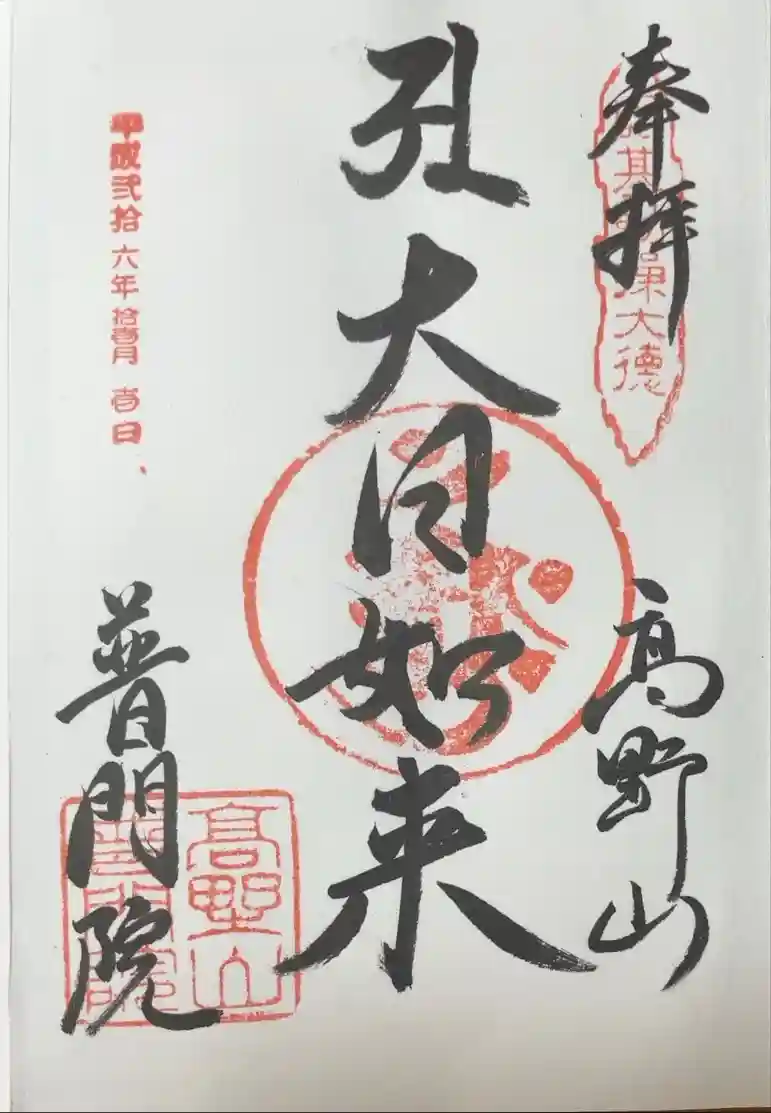 奉拝
大德
高野山
大日如来
平成弐拾六年拾壱月壱日
普門院
高野山
普門院